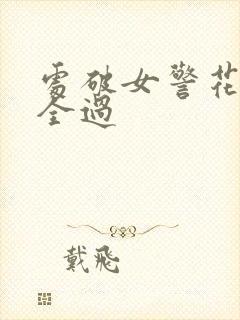 處破女警花
全過
戴飛